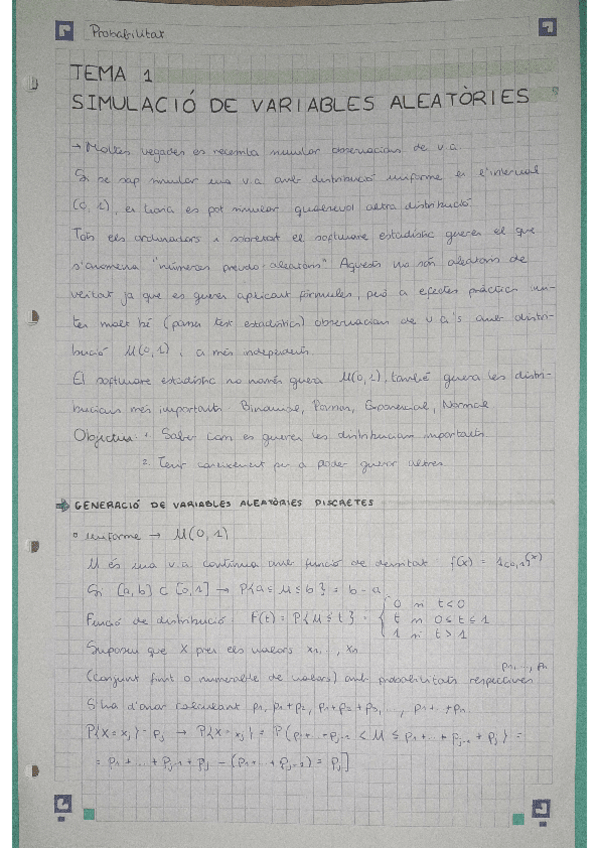 Probabilitat
TEMA 1
SIMULACIÓ DE VARIABLES ALEATÒRIES
→ Moltes vegades es necessita simular observacions de v.a.
Si se sap simular una v.a. amb distribució uniforme en l'interval
(0,1), es pot simular qualsevol altra distribució.
Tots els ordinadors i sobretot el software estadístic generen el que
s'anomena "números pseudo-aleatoris". Aquests no són aleatoris de
veritat ja que es generen aplicant fórmules, però a efectes pràctics imi-
ten molt bé (passen test estadístics) observacions de v.a.'s amb distri-
bució U(0,1), a més independents.
El software estadístic no només genera U(0,1), també genera les distri-
bucions més importants: Binomial, Poisson, Exponencial, Normal
Objectius: 1. Saber com es generen les distribucions importants
2. Tenir coneixement per a poder generar altres
→ GENERACIÓ DE VARIABLES ALEATÒRIES DISCRETES
° Uniforme → U(0,1)
U és una v.a. contínua amb funció de densitat: f(x) = 1(0,1)(x)
Si [a,b] ⊂ [0,1] → P{a ≤ U ≤ b} = b - a
Funció de distribució: F(t) = P{U ≤ t} = { 0 si t<0
t si 0≤t≤1
1 si t>1
Suposem que X pren els valors x1,..., xn
(conjunt finit o numerable de valors) amb probabilitats respectives p1,..., pn
S'ha d'anar calculant p1, p1+p2, p1+p2+p3, ..., p1+...+pn.
P{X=xj} = pj → P{X=xj} = P(p1+...+pj-1 < U ≤ p1+...+pj-1+pj} =
= p1+...+pj-1+pj - (p1+...+pj-1) = pj]